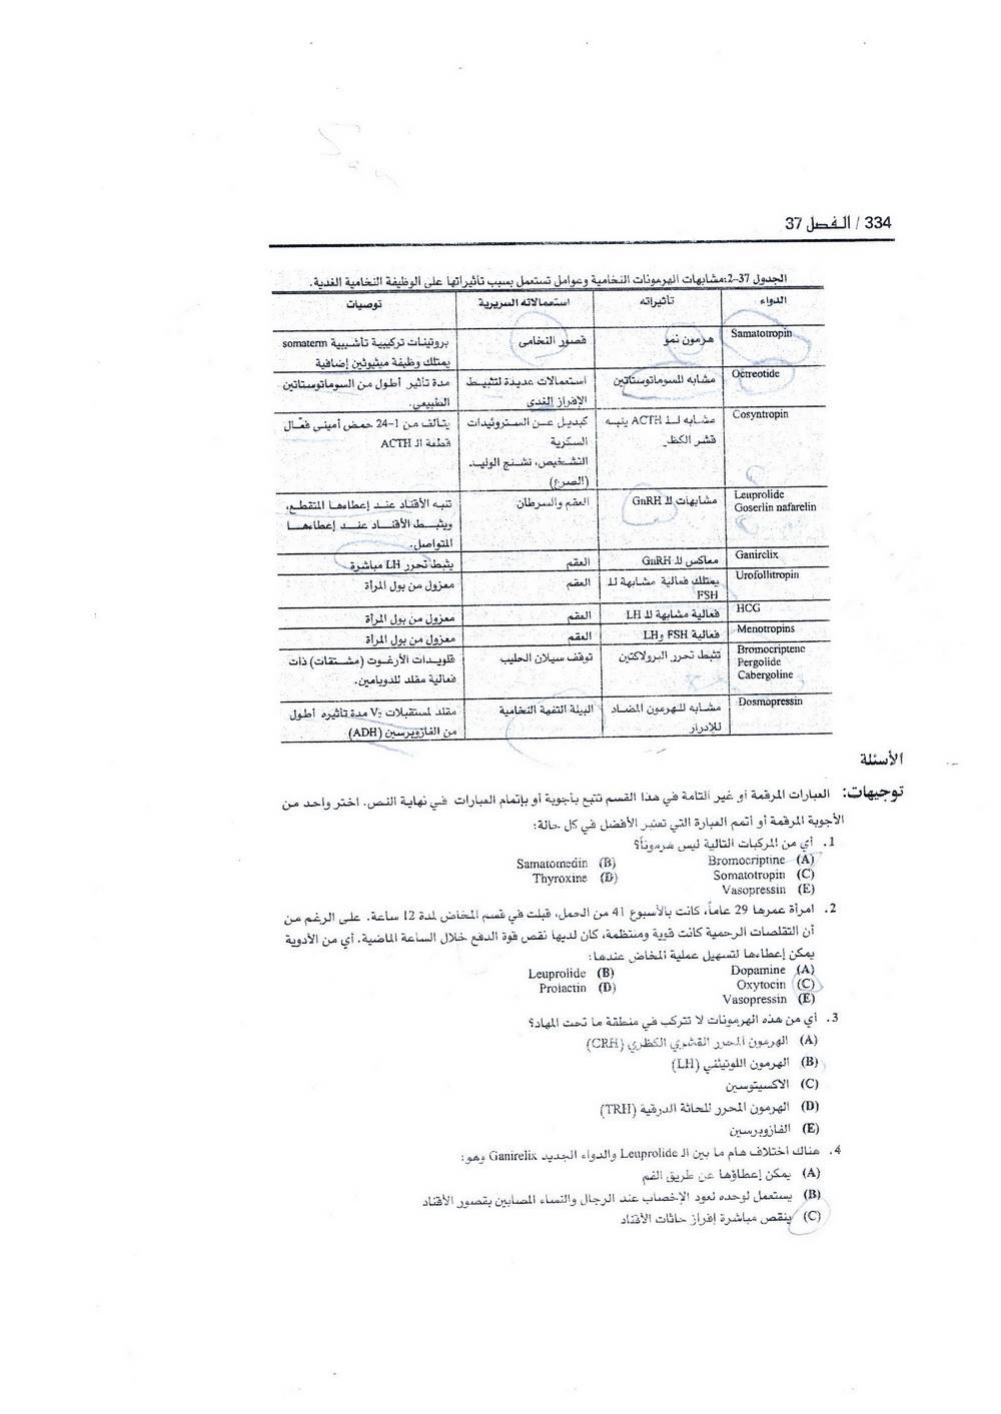 334 / الفصل 37
الجدول 37-2:مشابهات الهرمونات النخامية وعوامل تستعمل بسبب تأثيراتها على الوظيفة النخامية الغدية.
الدواء تأثيراته استعمالاته السريرية توصيات
Samatotropin هرمون نمو قصور النخامى بروتينات تركيبية تأشيبية somaterm
يمتلك وظيفة ميثيونين إضافية
Octreotide مشابه للسوماتوستاتين استعمالات عديدة لتثبيط مدة تأثير أطول من السوماتوستاتين
الإفراز الغدي الطبيعي.
Cosyntropin مشابه لـ ACTH ينبه كبديل عن الستروئيدات يتألف من 1–24 حمض أميني فعّال
قشر الكظر السكرية قطعة الـ ACTH
التشخيص، تشنج الوليد
(الصرع)
Leuprolide مشابهات للـ GnRH العقم والسرطان تنبه الأقناد عند إعطاءها المتقطع،
Goserlin nafarelin ويثبط الأقناد عند إعطاءها
المتواصل.
Ganirelix معاكس للـ GnRH العقم يثبط تحرر LH مباشرة
Urofollitropin يمتلك فعالية مشابهة للـ العقم معزول من بول المرأة
FSH
HCG فعالية مشابهة للـ LH العقم معزول من بول المرأة
Menotropins فعالية FSH وLH العقم معزول من بول المرأة
Bromocriptene تثبط تحرر البرولاكتين توقف سيلان الحليب قلويدات الأرغوت (مشتقات) ذات
Pergolide فعالية مقلد للدوبامين.
Cabergoline
Dosmopressin مشابه للهرمون المضاد البيلة التفهة النخامية مقلد لمستقبلات V2 مدة تأثيره أطول
للإدرار من الفازوبرسين (ADH)
الأسئلة
توجيهات: العبارات المرقمة أو غير التامة في هذا القسم تتبع بأجوبة أو بإتمام العبارات في نهاية النص. اختر واحد من
الأجوبة المرقمة أو أتمم العبارة التي تعتبر الأفضل في كل حالة:
1. أي من المركبات التالية ليس هرموناً؟
(A) Bromocriptine (B) Samatomedin
(C) Somatotropin (D) Thyroxine
(E) Vasopressin
2. امرأة عمرها 29 عاماً، كانت بالأسبوع 41 من الحمل، قبلت في قسم المخاض لمدة 12 ساعة. على الرغم من
أن التقلصات الرحمية كانت قوية ومنتظمة، كان لديها نقص قوة الدفع خلال الساعة الماضية. أي من الأدوية
يمكن إعطاءها لتسهيل عملية المخاض عندها:
(A) Dopamine (B) Leuprolide
(C) Oxytocin (D) Prolactin
(E) Vasopressin
3. أي من هذه الهرمونات لا تتركب في منطقة ما تحت المهاد؟
(A) الهرمون المحرر القشري الكظري (CRH)
(B) الهرمون اللوتيئني (LH)
(C) الاكسيتوسين
(D) الهرمون المحرر للحاثة الدرقية (TRH)
(E) الفازوبرسين
4. هناك اختلاف هام ما بين الـ Leuprolide والدواء الجديد Ganirelix وهو:
(A) يمكن إعطاؤها عن طريق الفم
(B) يستعمل لوحده لعود الإخصاب عند الرجال والنساء المصابين بقصور الأقناد
(C) ينقص مباشرة إفراز حاثات الأقناد